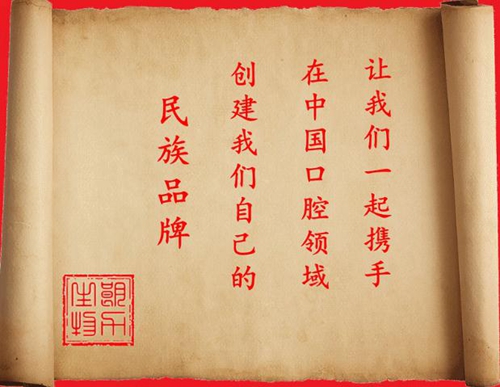 让我们一起携手
在中国口腔领域
创建我们自己的
民族品牌